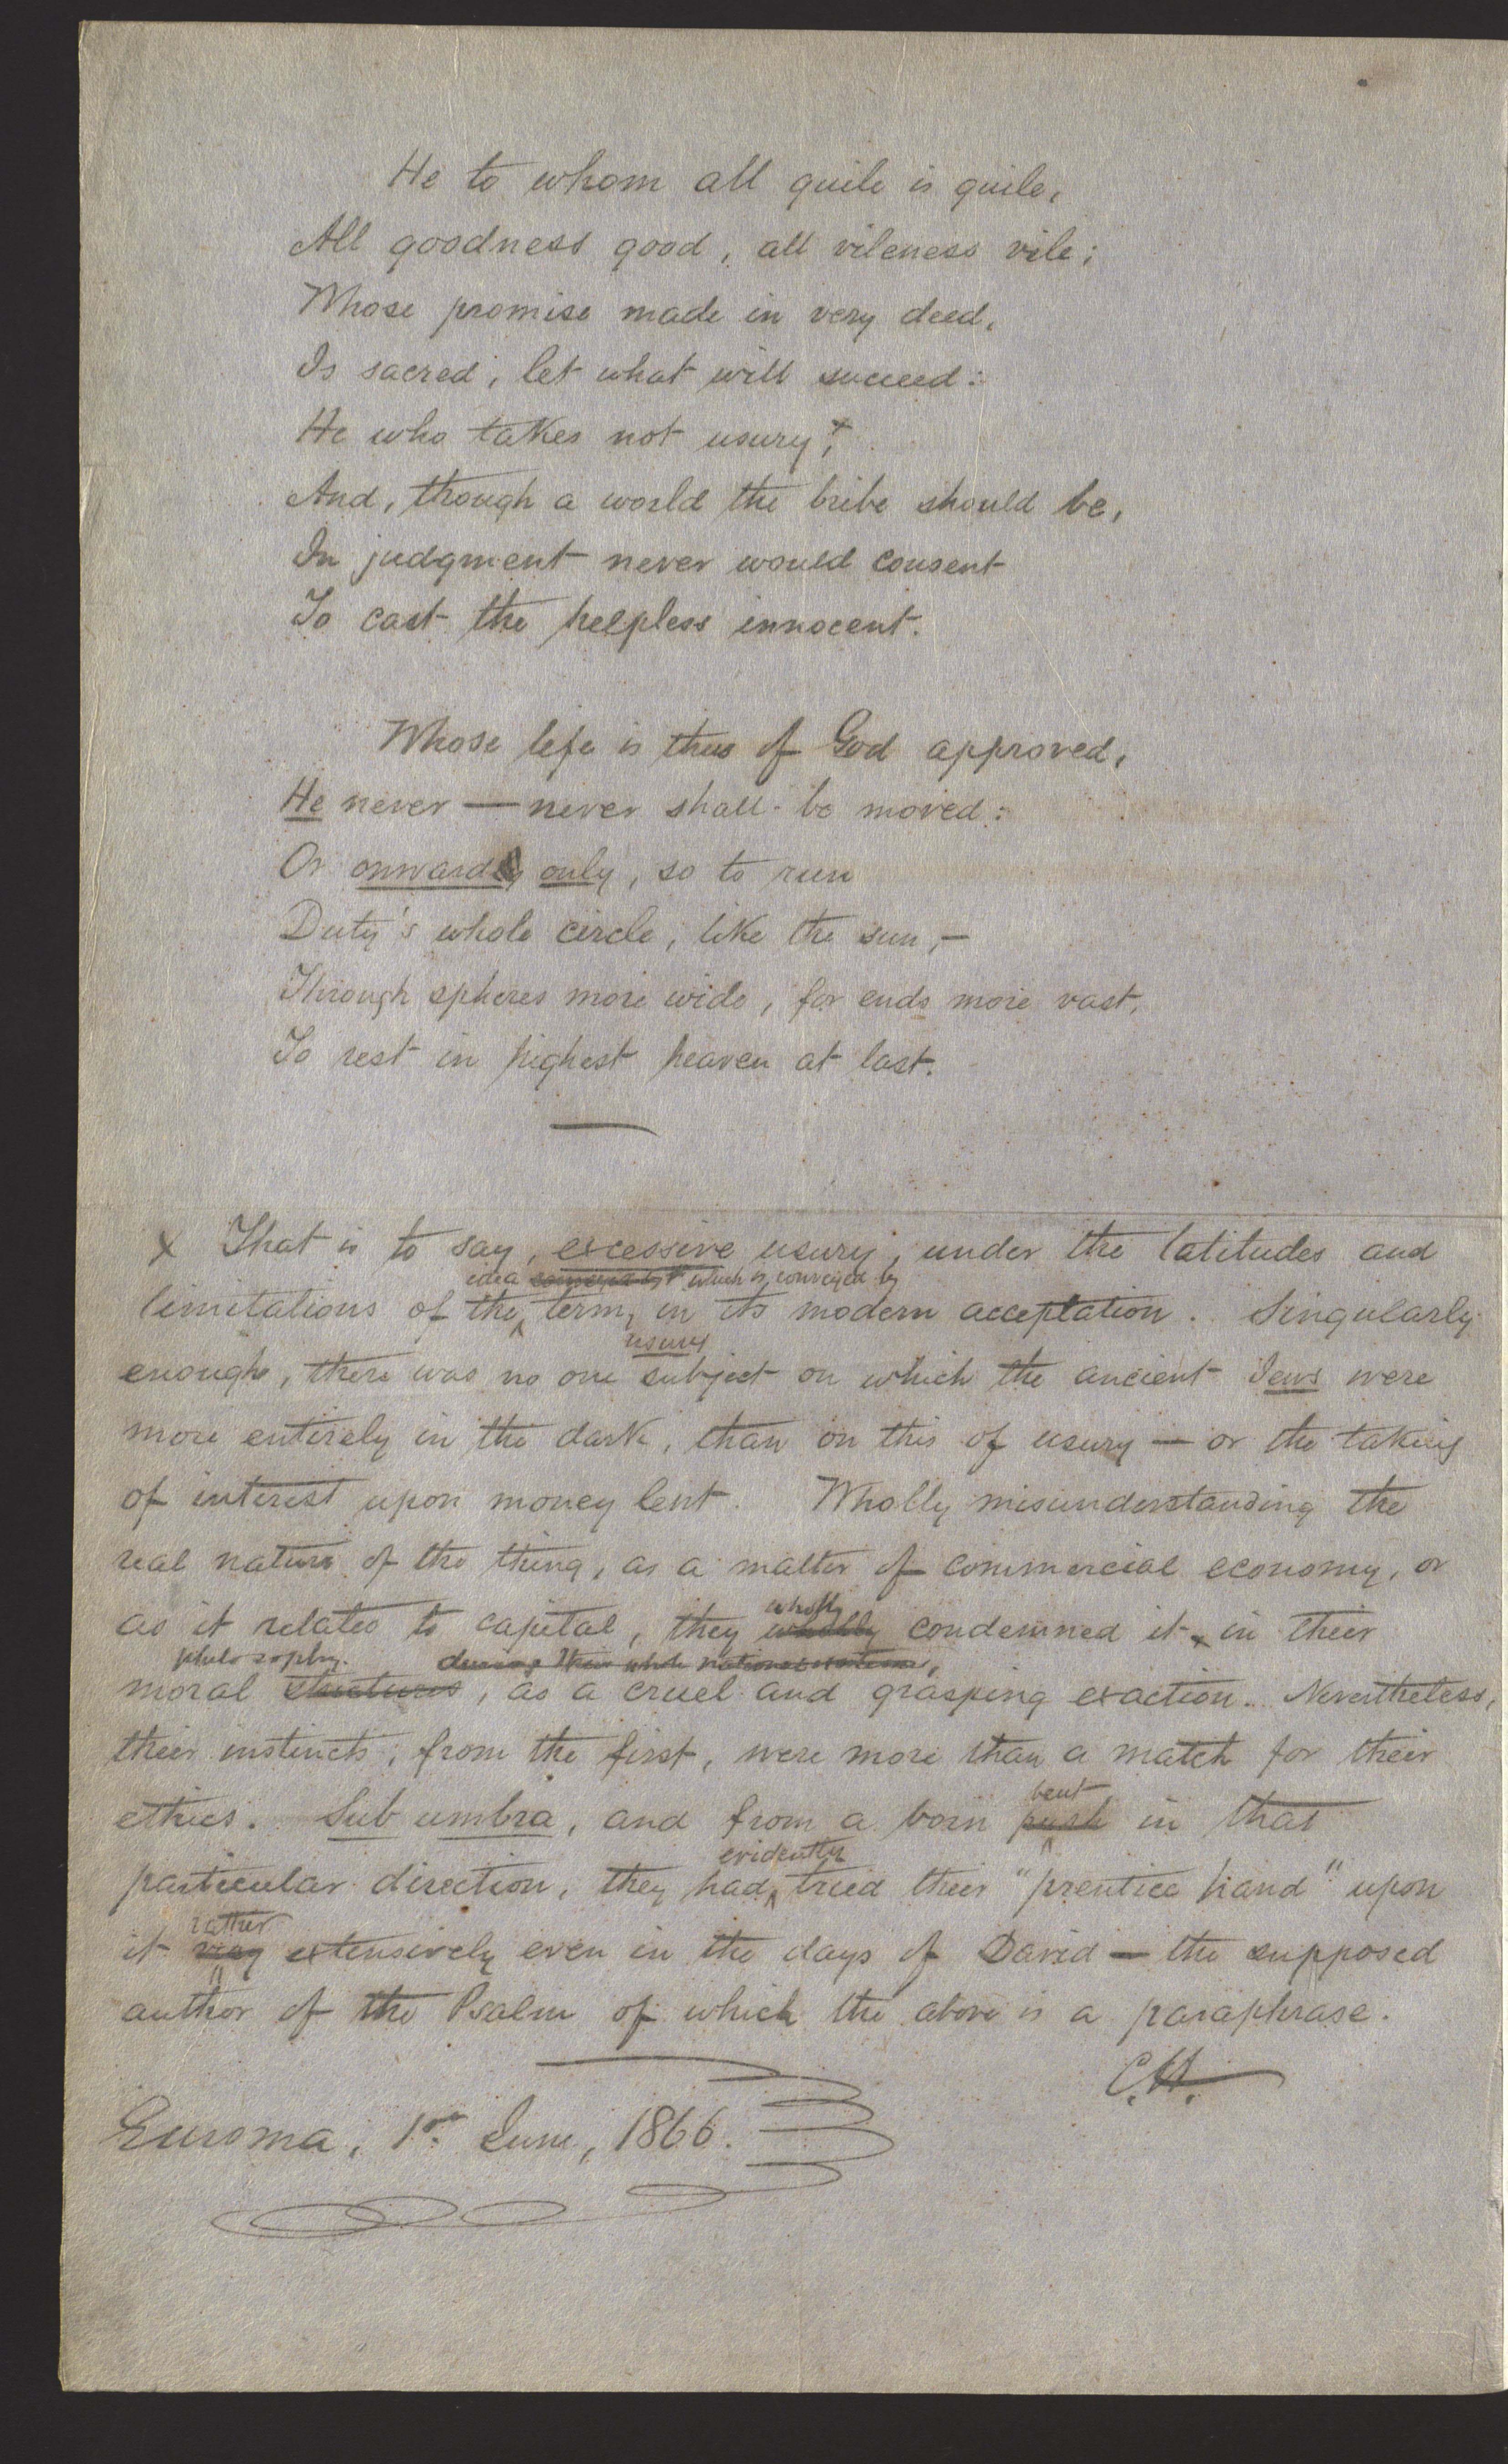 He to whom all guile is guile,
All goodness good, all vileness vile;
Whose promise made in very deed,
Is sacred, let what will succeed:
He who takes not usury;+
And, though a world the bribe should be,
In judgment never would consent
To cast the helpless innocent.
Whose life is thus of God approved,
He never — never shall be moved:
Or onwards only, so to run
Duty's whole circle, like the sun,—
Through spheres more wide, for ends more vast,
To rest in highest heaven at last.
x That is to say, excessive usury, under the latitudes and
idea which is conveyed by
limitations of the term, in its modern acceptation. Singularly
usury
enough, there was no one subject on which the ancient Jews were
more entirely in the dark, than on this of usury — or the taking
of interest upon money lent. Wholly misunderstanding the
real nature of the thing, as a matter of commercial economy, or
wholly
as it relates to capital, they wholly condemned it, in their
philosophy. during their whole national existence,
moral strictures, as a cruel and grasping exaction. Nevertheless,
their instincts, from the first, were more than a match for their
bent
ethics. Sub umbra, and from a born push in that
evidently
particular direction, they had tried their "prentice hand" upon
rather
it very extensively even in the days of David — the supposed
author of the Psalm of which the above is a paraphrase.
C.H.
Euroma, 1st June, 1866.